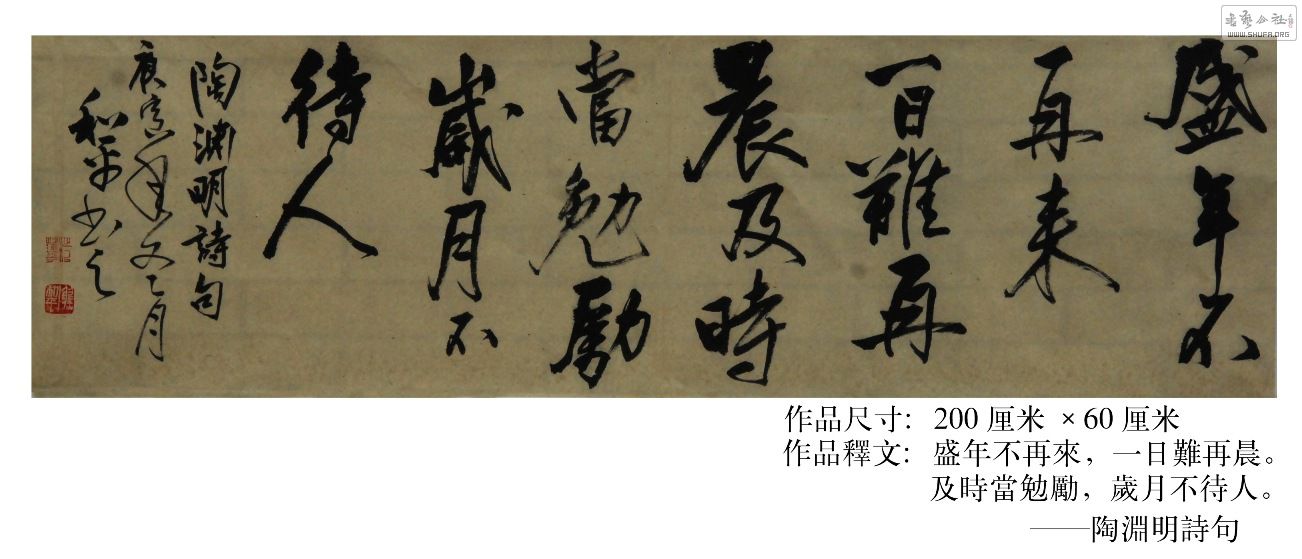 WWW.SHUFA.ORG
盛年不
再来
一日難再
晨及時
當勉勵
歲月不
待人
陶淵明詩句
庚寅年又二月
和平書之
作品尺寸：200厘米 ×60厘米
作品釋文：盛年不再來，一日難再晨。
及時當勉勵，歲月不待人。
——陶淵明詩句